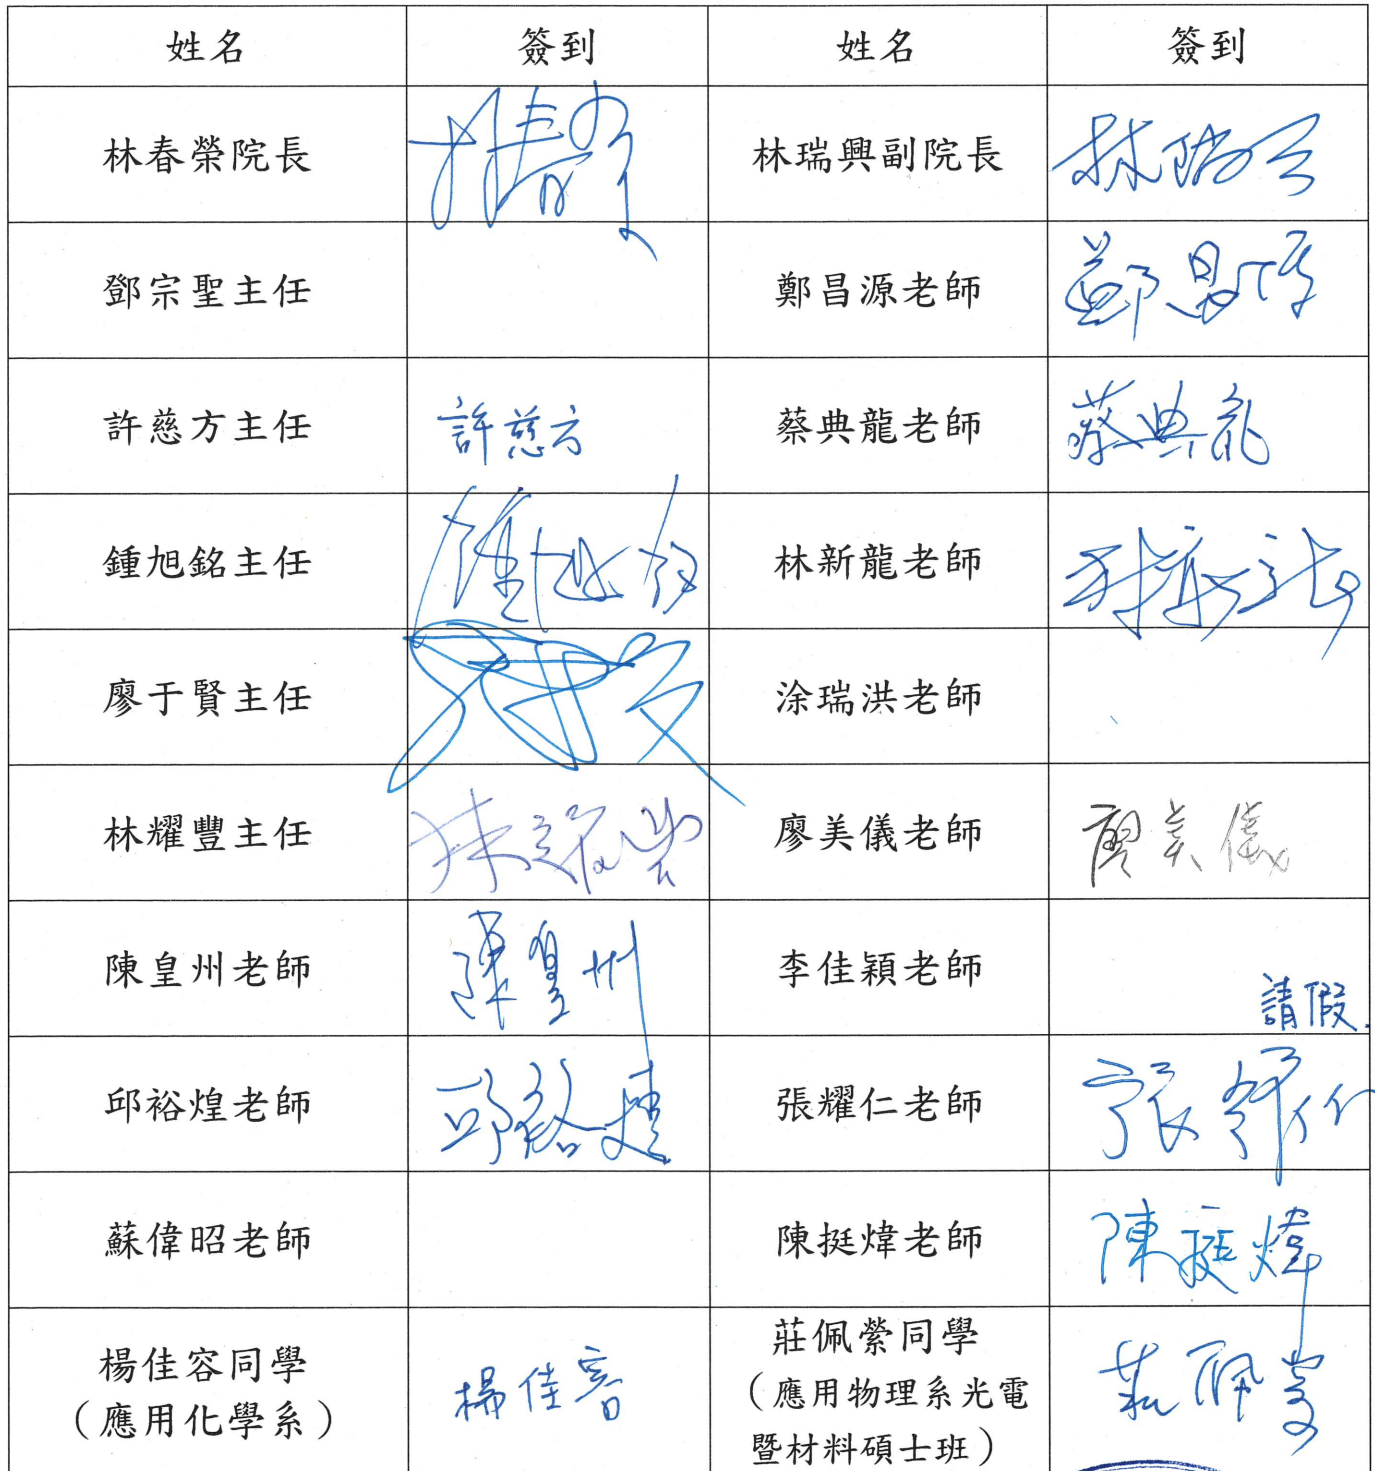 姓名 簽到 姓名 簽到
林春榮院長 林春榮 林瑞興副院長 林瑞興
鄧宗聖主任 鄭昌源老師 鄭昌源
許慈方主任 許慈方 蔡典龍老師 蔡典龍
鍾旭銘主任 鍾旭銘 林新龍老師 林新龍
廖于賢主任 涂瑞洪老師
林耀豐主任 林耀豐 廖美儀老師 廖美儀
陳皇州老師 陳皇州 李佳穎老師 請假.
邱裕煌老師 邱裕煌 張耀仁老師 張耀仁
蘇偉昭老師 陳挺煒老師 陳挺煒
楊佳容同學 楊佳容 莊佩縈同學 莊佩縈
（應用化學系） （應用物理系光電
暨材料碩士班）